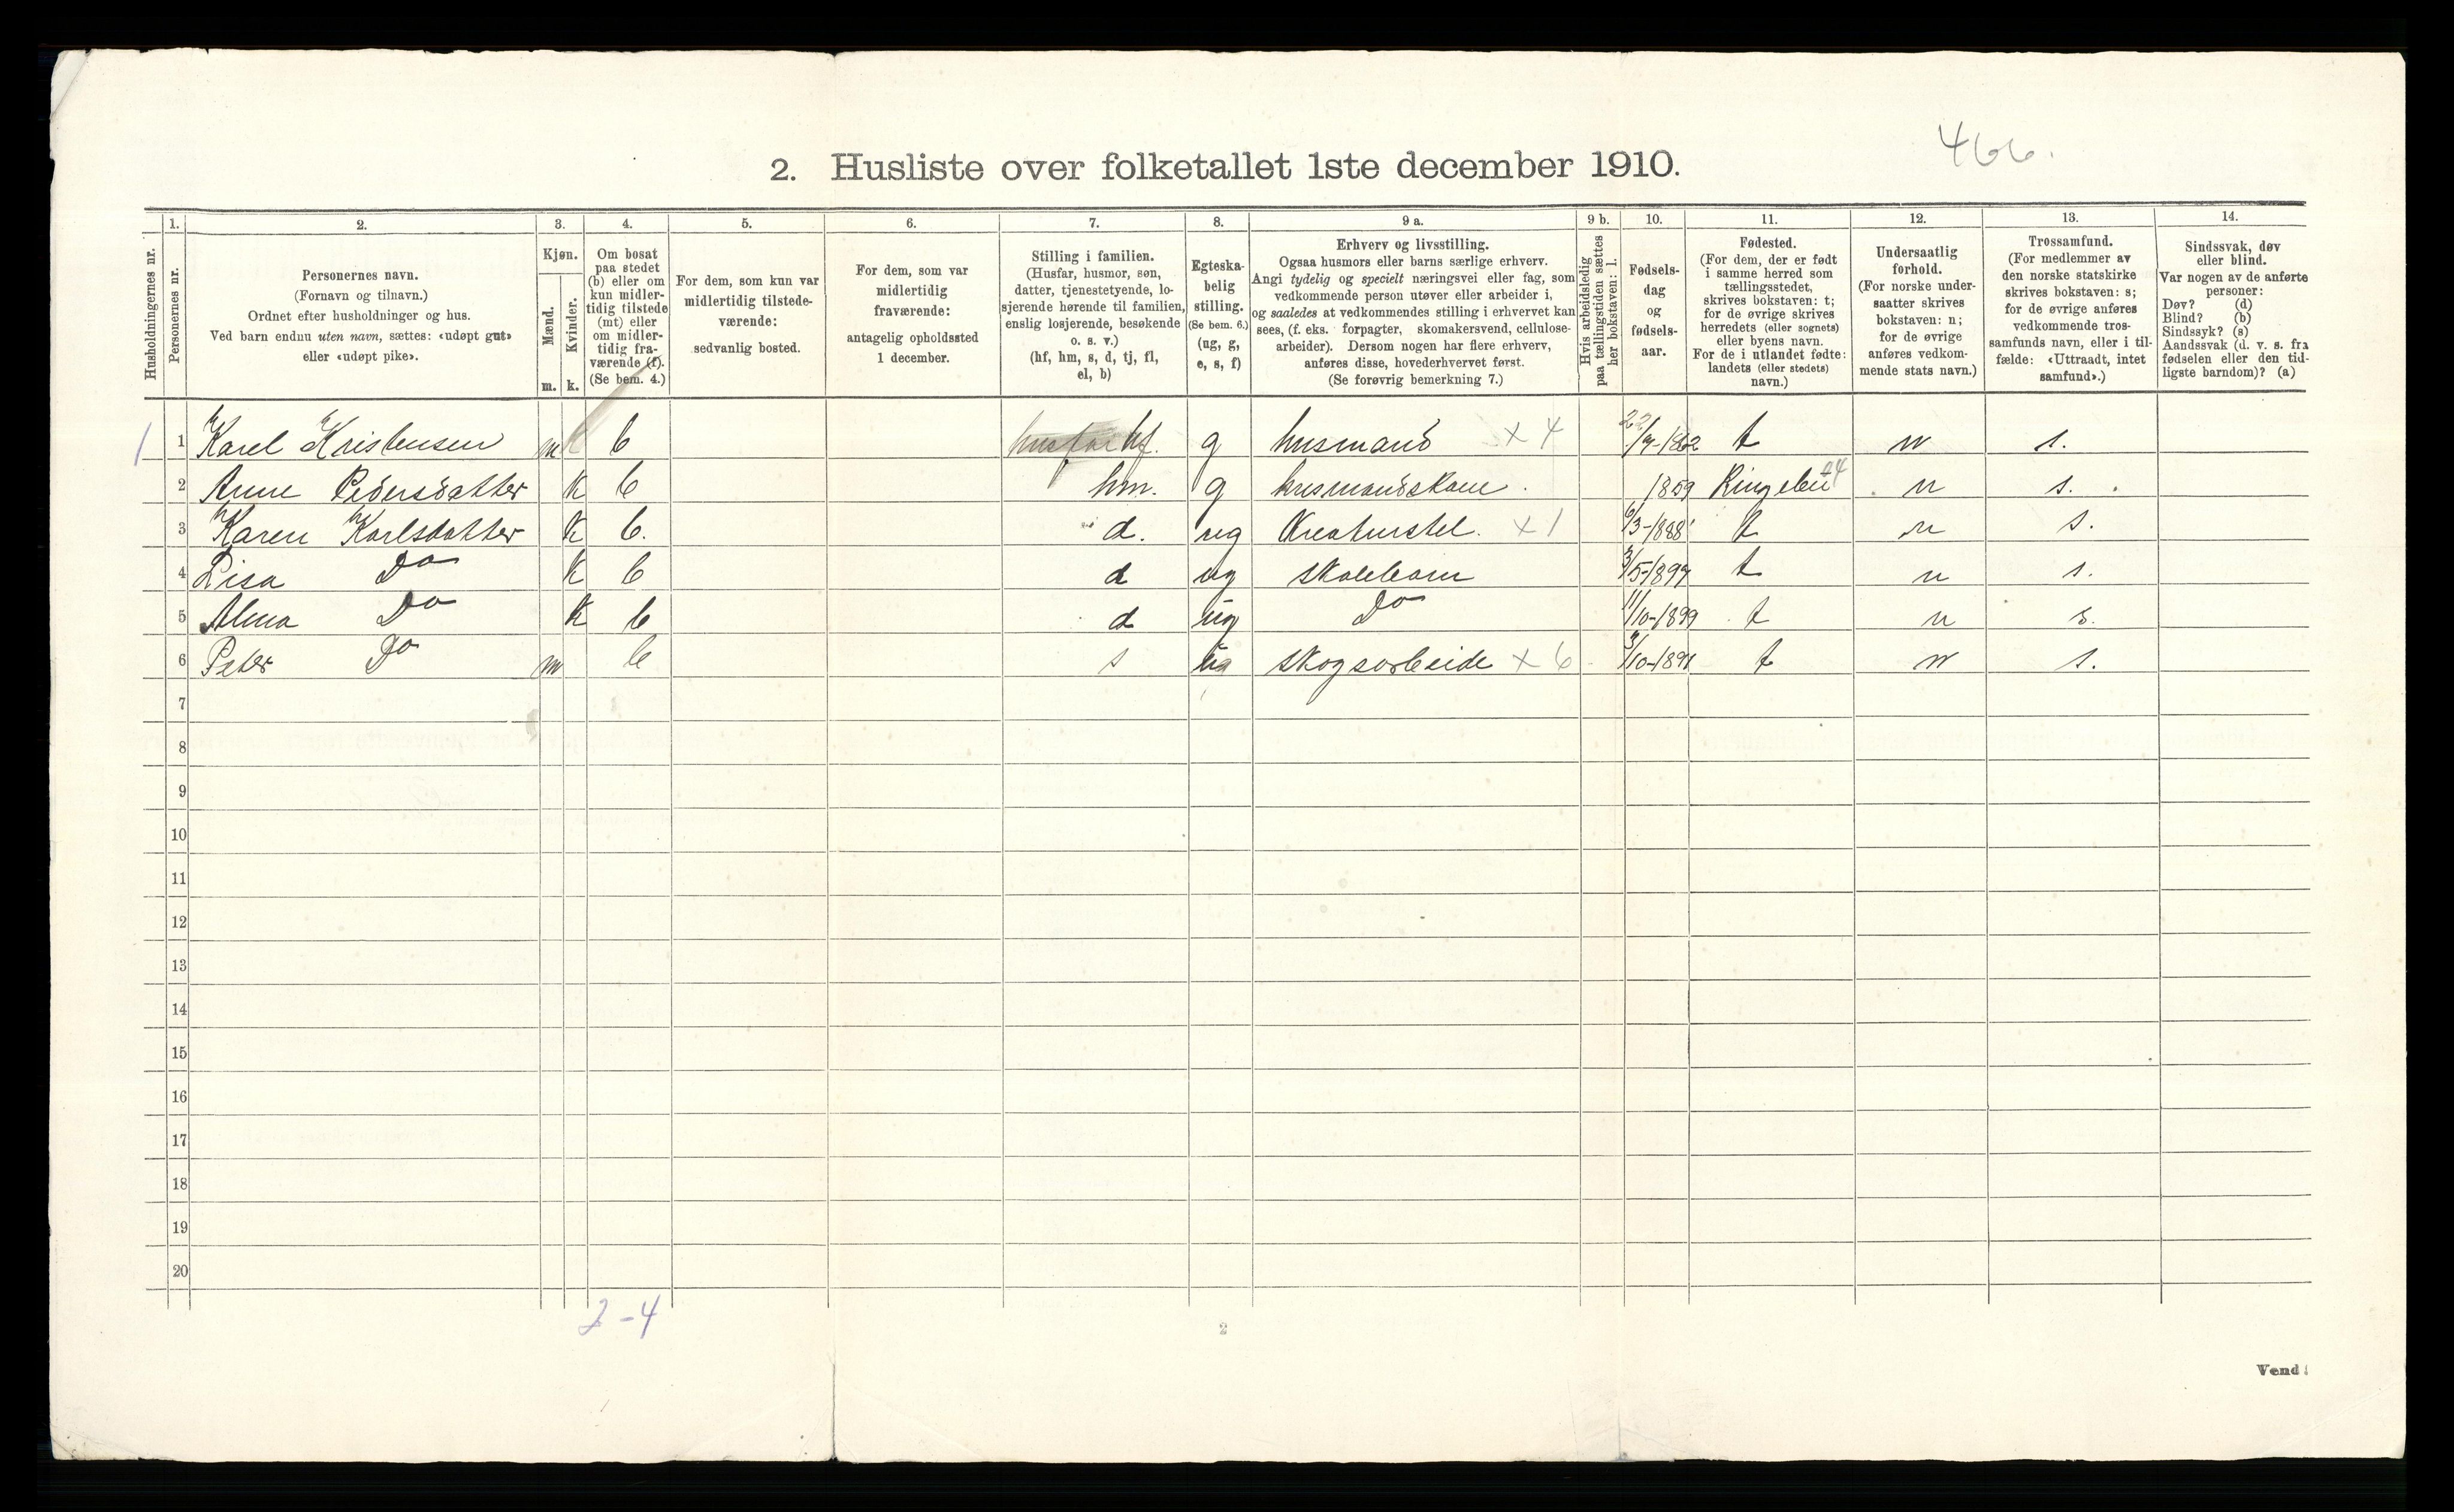 466.
2. Husliste over folketallet 1ste december 1910.
Husholdningernes nr.
1.
Personernes nr.
2.
Personernes navn.
(Fornavn og tilnavn.)
Ordnet efter husholdninger og hus.
Ved barn endnu uten navn, sættes: «udøpt gut»
eller «udøpt pike».
3.
Kjøn.
Mænd.
Kvinder.
m. k.
4.
Om bosat
paa stedet
(b) eller om
kun midler-
tidig tilstede
(mt) eller
om midler-
tidig fra-
værende (f).
(Se bem. 4.)
5.
For dem, som kun var
midlertidig tilstede-
værende:
sedvanlig bosted.
6.
For dem, som var
midlertidig
fraværende:
antagelig opholdssted
1 december.
7.
Stilling i familien.
(Husfar, husmor, søn,
datter, tjenestetyende, lo-
sjerende hørende til familien,
enslig losjerende, besøkende
o. s. v.)
(hf, hm, s, d, tj, fl,
el, b)
8.
Egteska-
belig
stilling.
(Se bem. 6.)
(ug, g,
e, s, f)
9 a.
Erhverv og livsstilling.
Ogsaa husmors eller barns særlige erhverv.
Angi tydelig og specielt næringsvei eller fag, som
vedkommende person utøver eller arbeider i,
og saaledes at vedkommendes stilling i erhvervet kan
sees, (f. eks. forpagter, skomakersvend, cellulose-
arbeider). Dersom nogen har flere erhverv,
anføres disse, hovederhvervet først.
(Se forøvrig bemerkning 7.)
9 b.
Hvis arbeidsledig
paa tællingstiden sættes
her bokstaven: l.
10.
Fødsels-
dag
og
fødsels-
aar.
11.
Fødested.
(For dem, der er født
i samme herred som
tællingsstedet,
skrives bokstaven: t;
for de øvrige skrives
herredets (eller sognets)
eller byens navn.
For de i utlandet fødte:
landets (eller stedets)
navn.)
12.
Undersaatlig
forhold.
(For norske under-
saatter skrives
bokstaven: n;
for de øvrige
anføres vedkom-
mende stats navn.)
13.
Trossamfund.
(For medlemmer av
den norske statskirke
skrives bokstaven: s;
for de øvrige anføres
vedkommende tros-
samfunds navn, eller i til-
fælde: «Uttraadt, intet
samfund».)
14.
Sindssvak, døv
eller blind.
Var nogen av de anførte
personer:
Døv? (d)
Blind? (b)
Sindssyk? (s)
Aandssvak (d. v. s. fra
fødselen eller den tid-
ligste barndom)? (a)
1 1 Karel Kristensen m b husfar hf. g husmand x 4 22/9-1862 t n s.
2 Anne Pedersdatter K b hm. g husmandskone. 1859 Ringebu 04 n s.
3 Karen Karlsdatter K b. d. ug Kreaturstel. x 1 6/3-1888 t n s.
4 Lisa Do K b d ug skolebarn 3/5-1897 t n s.
5 Alma Do K b d ug Do 11/10-1899 t n s.
6 Peter Do m b s ug skogsarbeide x 6 /10-1891 t n s.
7
8
9
10
11
12
13
14
15
16
17
18
19
20
2-4
2
Vend!